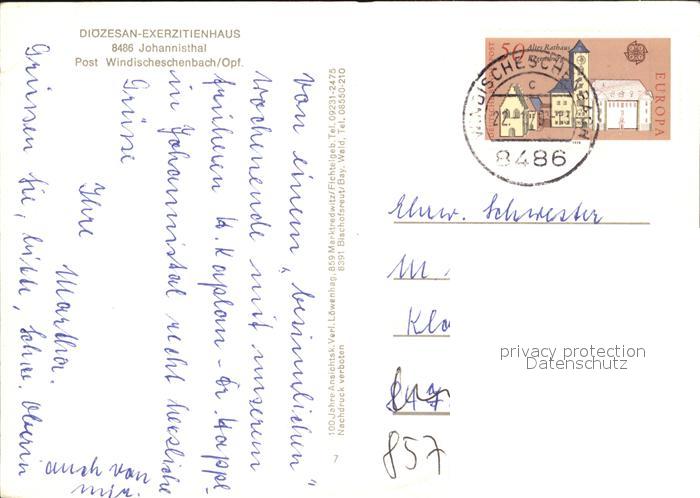 DIÖZESAN-EXERZITIENHAUS
8486 Johannisthal
Post Windischeschenbach/Opf.
von einem „besinnlichen"
Wochenende mit unserem
früheren H. Kaplan - Dr. Happl-
in Johannistal recht herzliche
Grüsse
Ihre
Martha.
Grüssen Sie, bitte, Schw. Oberin
auch von
mir.
100 Jahre Ansichtsk. Verl. Löwenhag, 859 Marktredwitz/Fichtelgeb., Tel. 09231-2475
8391 Bischofsreut/Bay. Wald, Tel. 08550-210
Nachdruck verboten
7
50
Altes Rathaus
EUROPA
WINDISCHESCHENBACH
c
8486
Ehrw. Schwester
M
Klo
857
privacy protection
Datenschutz